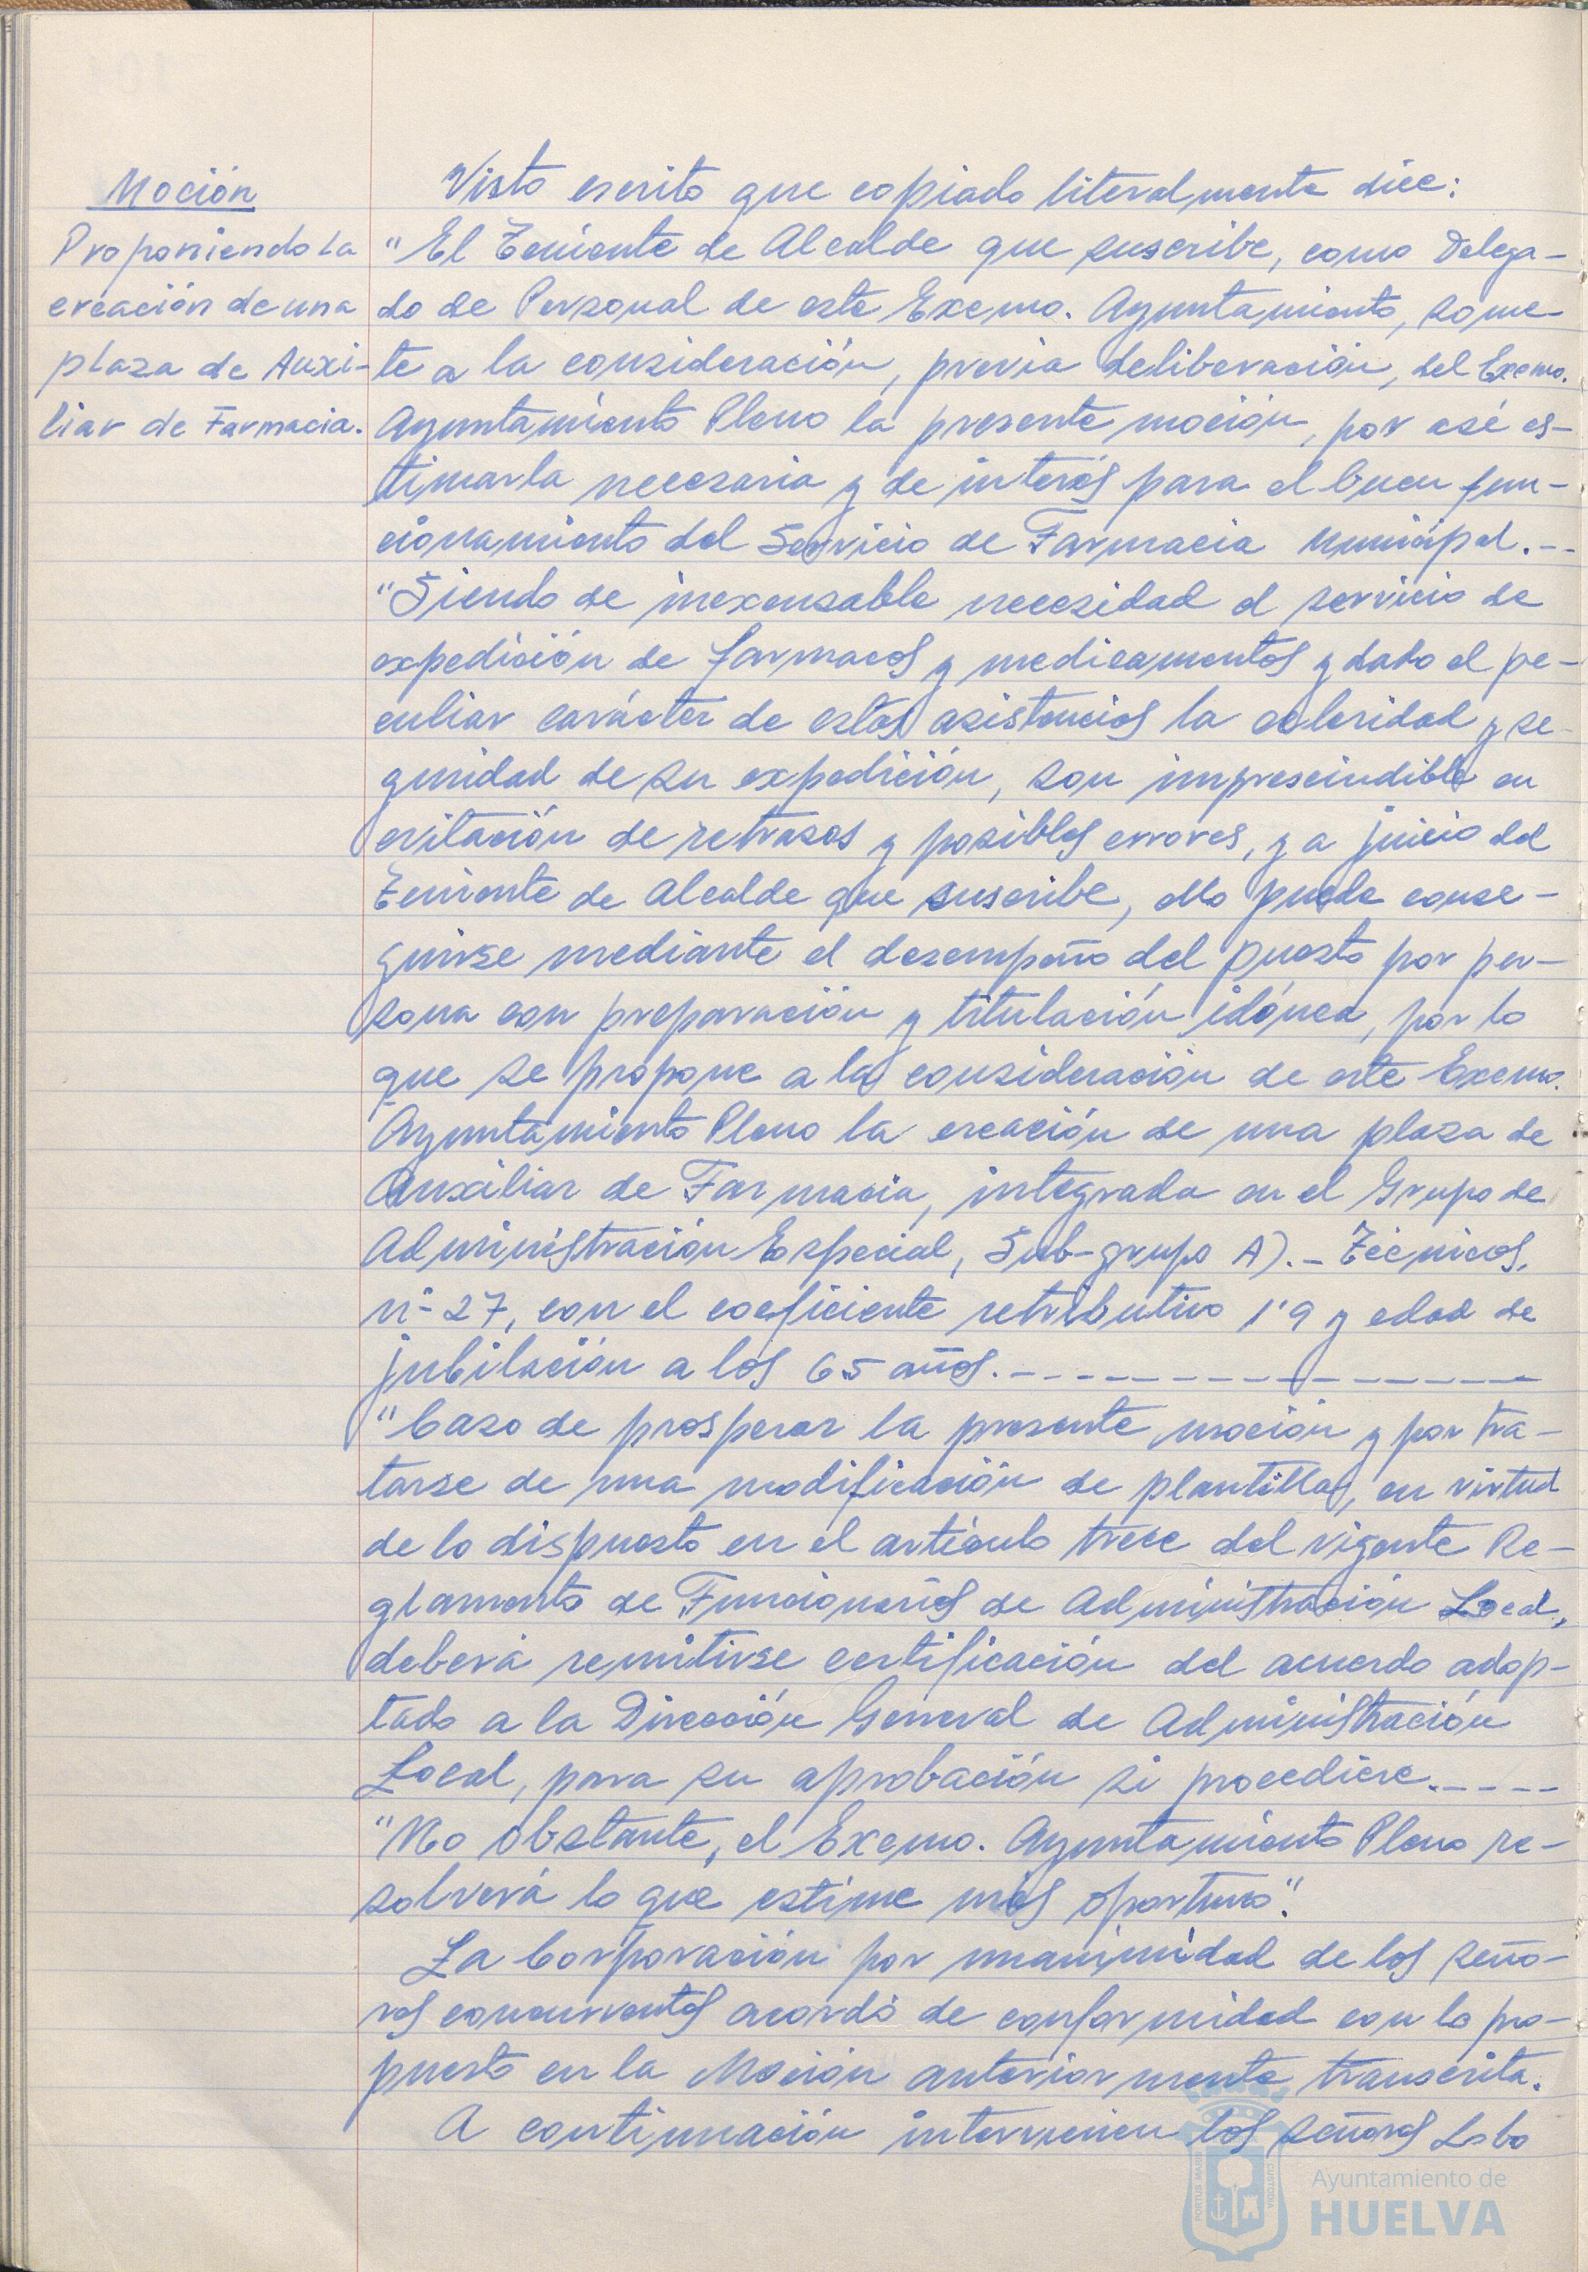 Moción
Proponiendo la
creación de una
plaza de Auxi-
liar de Farmacia.
Visto escrito que copiado literalmente dice:
"El Teniente de Alcalde que suscribe, como Delega-
do de Personal de este Excmo. Ayuntamiento, some-
te a la consideración, previa deliberación, del Excmo.
Ayuntamiento Pleno la presente moción, por asé es-
timarla necesaria y de interés para el buen fun-
cionamiento del Servicio de Farmacia Municipal.--
"Siendo de inexcusable necesidad el servicio de
expedición de farmacos y medicamentos y dado el pe-
culiar carácter de estas asistencias la celeridad y se-
guridad de su expedición, son imprescindible en
evitación de retrasos y posibles errores, y a juicio del
Teniente de Alcalde que suscribe, ello puede conse-
guirse mediante el desempeño del puesto por per-
sona con preparación y titulación idónea, por lo
que se propone a la consideración de este Excmo.
Ayuntamiento Pleno la creación de una plaza de
Auxiliar de Farmacia, integrada en el Grupo de
Administración Especial, Sub-grupo A).- Técnicos,
nº 27, con el coeficiente retributivo 1'9 y edad de
jubilación a los 65 años.----------------
"Caso de prosperar la presente moción y por tra-
tarse de una modificación de plantilla, en virtud
de lo dispuesto en el artículo trece del vigente Re-
glamento de Funcionarios de Administración Local,
deberá remitirse certificación del acuerdo adop-
tado a la Dirección General de Administración
Local, para su aprobación si procediere.----
"No obstante, el Excmo. Ayuntamiento Pleno re-
solverá lo que estime más oportuno".
La Corporación por unanimidad de los seño-
res concurrentes acordó de conformidad con lo pro-
puesto en la Moción anteriormente transcrita.
A continuación intervienen los señores Lobo
PORTUS MARIS
CUSTODIA
Ayuntamiento de
HUELVA